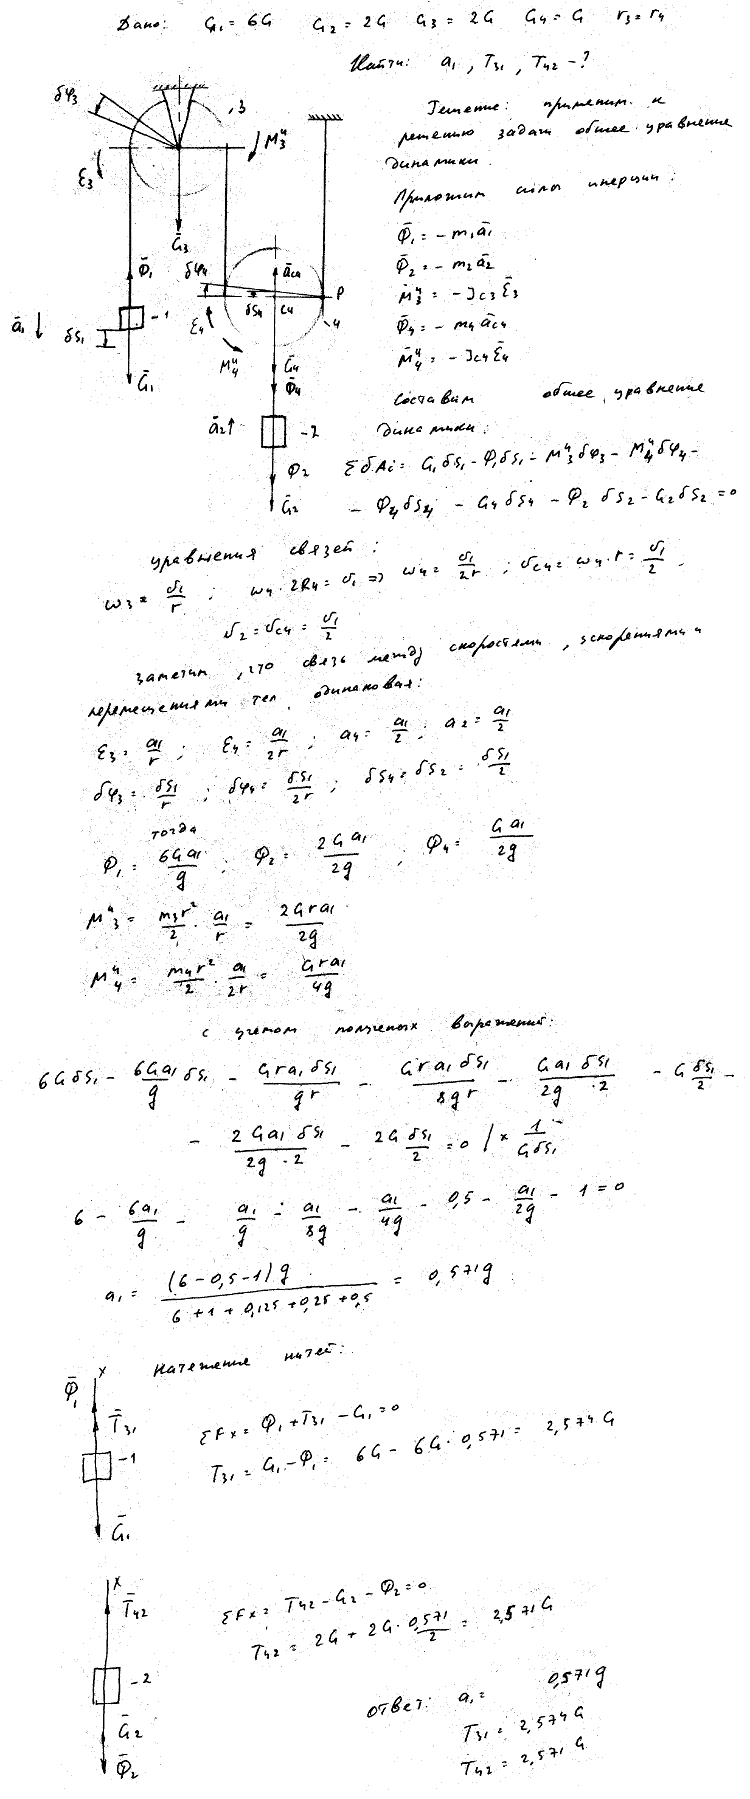 Дано: G₁ = 6G G₂ = 2G G₃ = 2G G₄ = G r₃ = r₄
Найти: a₁, T₃₁, T₄₂ - ?
Решение: применим к
решению задачи общее уравнение
динамики.
Приложим силы инерции:
Φ̄₁ = - m₁ā₁
Φ̄₂ = - m₂ā₂
M̄₃ᵘ = - Jc₃ε̄₃
Φ̄₄ = - m₄āc₄
M̄₄ᵘ = - Jc₄ε̄₄
Составим общее уравнение
динамики:
ΣδAi = G₁δS₁ - Φ₁δS₁ - M₃ᵘδφ₃ - M₄ᵘδφ₄ -
- Φ₄δS₄ - G₄δS₄ - Φ₂ δS₂ - G₂δS₂ = 0
δφ₃
3
M₃ᵘ
ε₃
Ḡ₃
Φ̄₁
δφ₄
āc₄
P
ā₁
-1
δS₄
C₄
4
δS₁
ε₄
M₄ᵘ
Ḡ₄
Φ̄₄
Ḡ₁
ā₂
-2
Φ₂
Ḡ₂
уравнения связей:
ω₃ = v₁/r ; ω₄ · 2R₄ = v₁ => ω₄ = v₁/2r ; vc₄ = ω₄ · r = v₁/2 ,
v₂ = vc₄ = v₁/2
заметим, что связь между скоростями, ускорениями и
перемещениями тел одинаковая:
ε₃ = a₁/r ; ε₄ = a₁/2r ; a₄ = a₁/2 ; a₂ = a₁/2
δφ₃ = δS₁/r ; δφ₄ = δS₁/2r ; δS₄ = δS₂ = δS₁/2
тогда
Φ₁ = 6Ga₁/g ; Φ₂ = 2Ga₁/2g ; Φ₄ = Ga₁/2g
M₃ᵘ = m₃r²/2 · a₁/r = 2Gra₁/2g
M₄ᵘ = m₄r²/2 · a₁/2r = Gra₁/4g
с учетом полученых выражений:
6GδS₁ - 6Ga₁/g δS₁ - Gra₁δS₁/gr - Gra₁δS₁/8gr - Ga₁δS₁/2g·2 - G δS₁/2 -
- 2Ga₁δS₁/2g·2 - 2G δS₁/2 = 0 | × 1/GδS₁
6 - 6a₁/g - a₁/g - a₁/8g - a₁/4g - 0,5 - a₁/2g - 1 = 0
a₁ = (6-0,5-1)g/6+1+0,125+0,25+0,5 = 0,571g
Натежение нитей:
Φ̄₁
x
T̄₃₁
-1
Ḡ₁
ΣFx = Φ₁ + T₃₁ - G₁ = 0
T₃₁ = G₁ - Φ₁ = 6G - 6G · 0,571 = 2,574G
x
T̄₄₂
-2
Ḡ₂
Φ̄₂
ΣFx = T₄₂ - G₂ - Φ₂ = 0
T₄₂ = 2G + 2G · 0,571/2 = 2,571G
ответ: a₁ = 0,571g
T₃₁ = 2,574G
T₄₂ = 2,571G